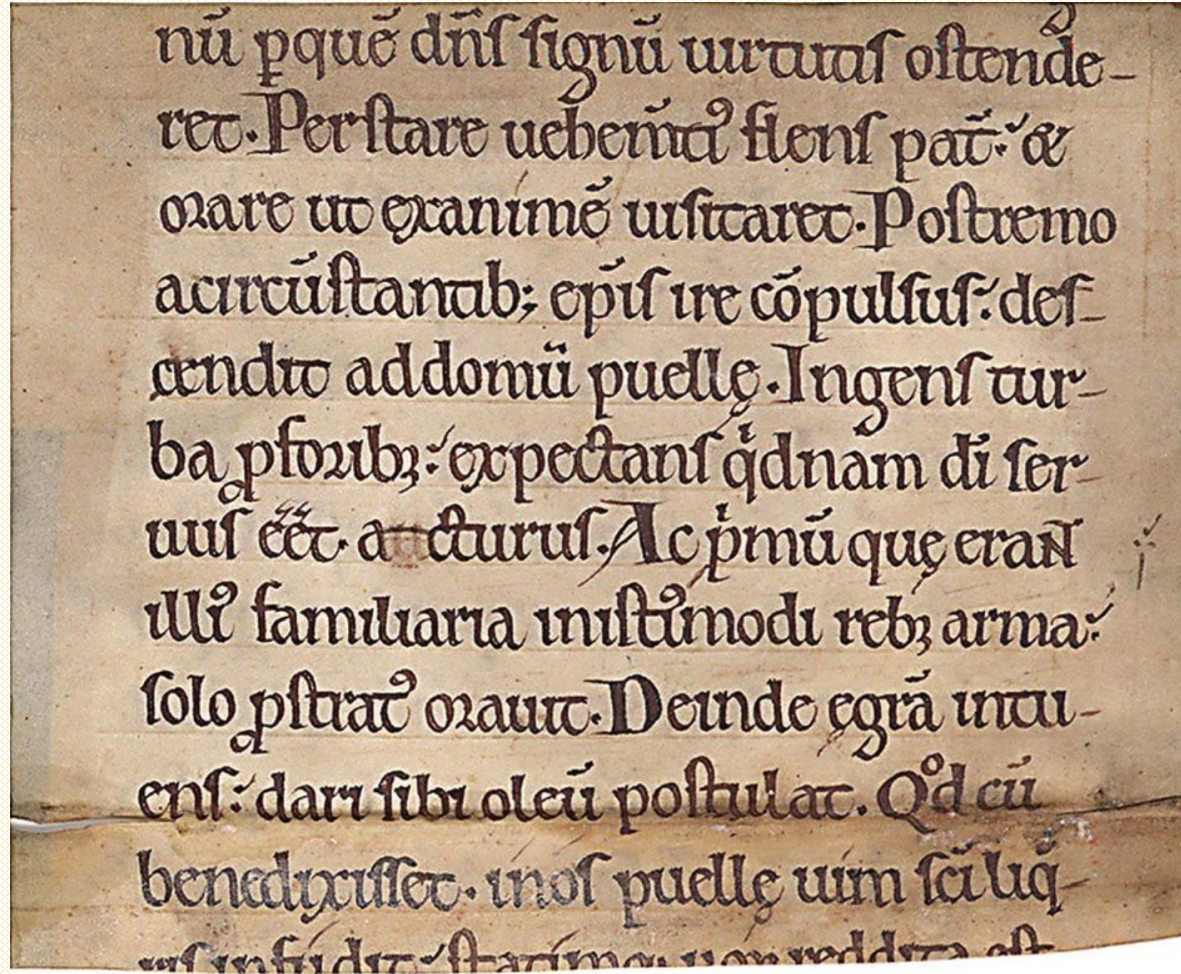 nū ꝑquē dn̄s signū uirtutis ostende-
ret. Perstare uehem̄tꝰ flens pat̄. &
orare ut exanimē uisitaret. Postremo
acircūstantib; ep̄is ire cōpulsus. des-
cendit addomū puellę. Ingens tur-
ba ꝓforibꝫ. expectans qͥdnam dī ser-
uus eēt. acturus. Ac pͥmū quę erant
illiꝰ familiaria inistiꝰmodi rebꝫ arma.
solo ꝓstratꝰ orauit. Deinde ęgrā intu-
ens. dari sibi oleū postulat. Qͦd cū
benedixisset. inos puellę uim sc̄i liq̄-
ris infūdit. statimq; uox reddita est